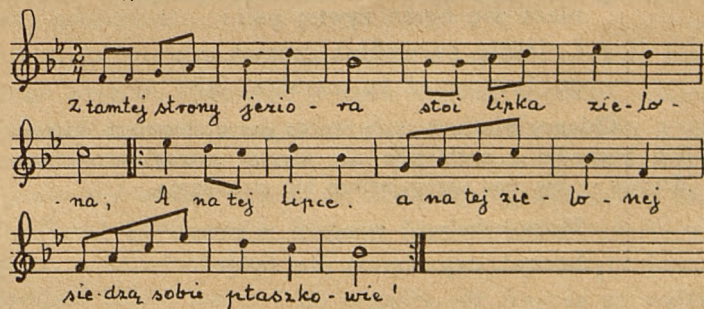 2 4
Z tamtej strony jezio - ra stoi lipka zie - lo -
- na, A na tej lipce. a na tej zie - lo - nej
sie - dzą sobie ptaszko - wie!